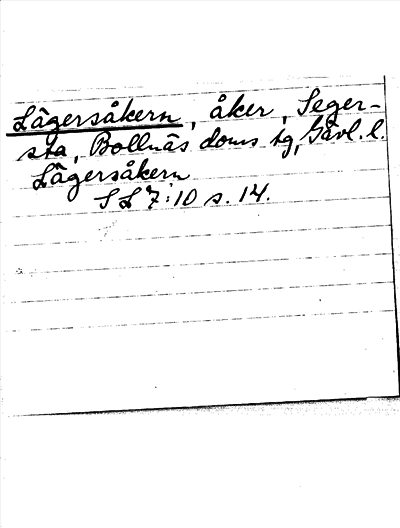 Lägersåkern, åker, Seger-
sta, Bollnäs doms sg, Gävl. l.
Lägersåkern
SL 7:10 s. 14.